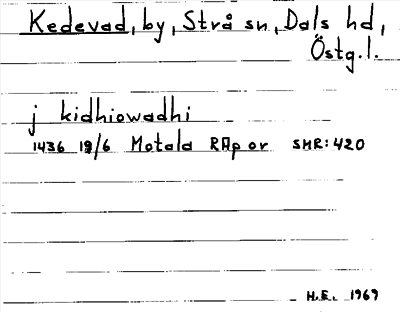 Kedevad, by, Strå sn, Dals hd,
Östg.l.
j kidhiowadhi
1436 19/6 Motala RAp or SMR:420
H.E. 1969